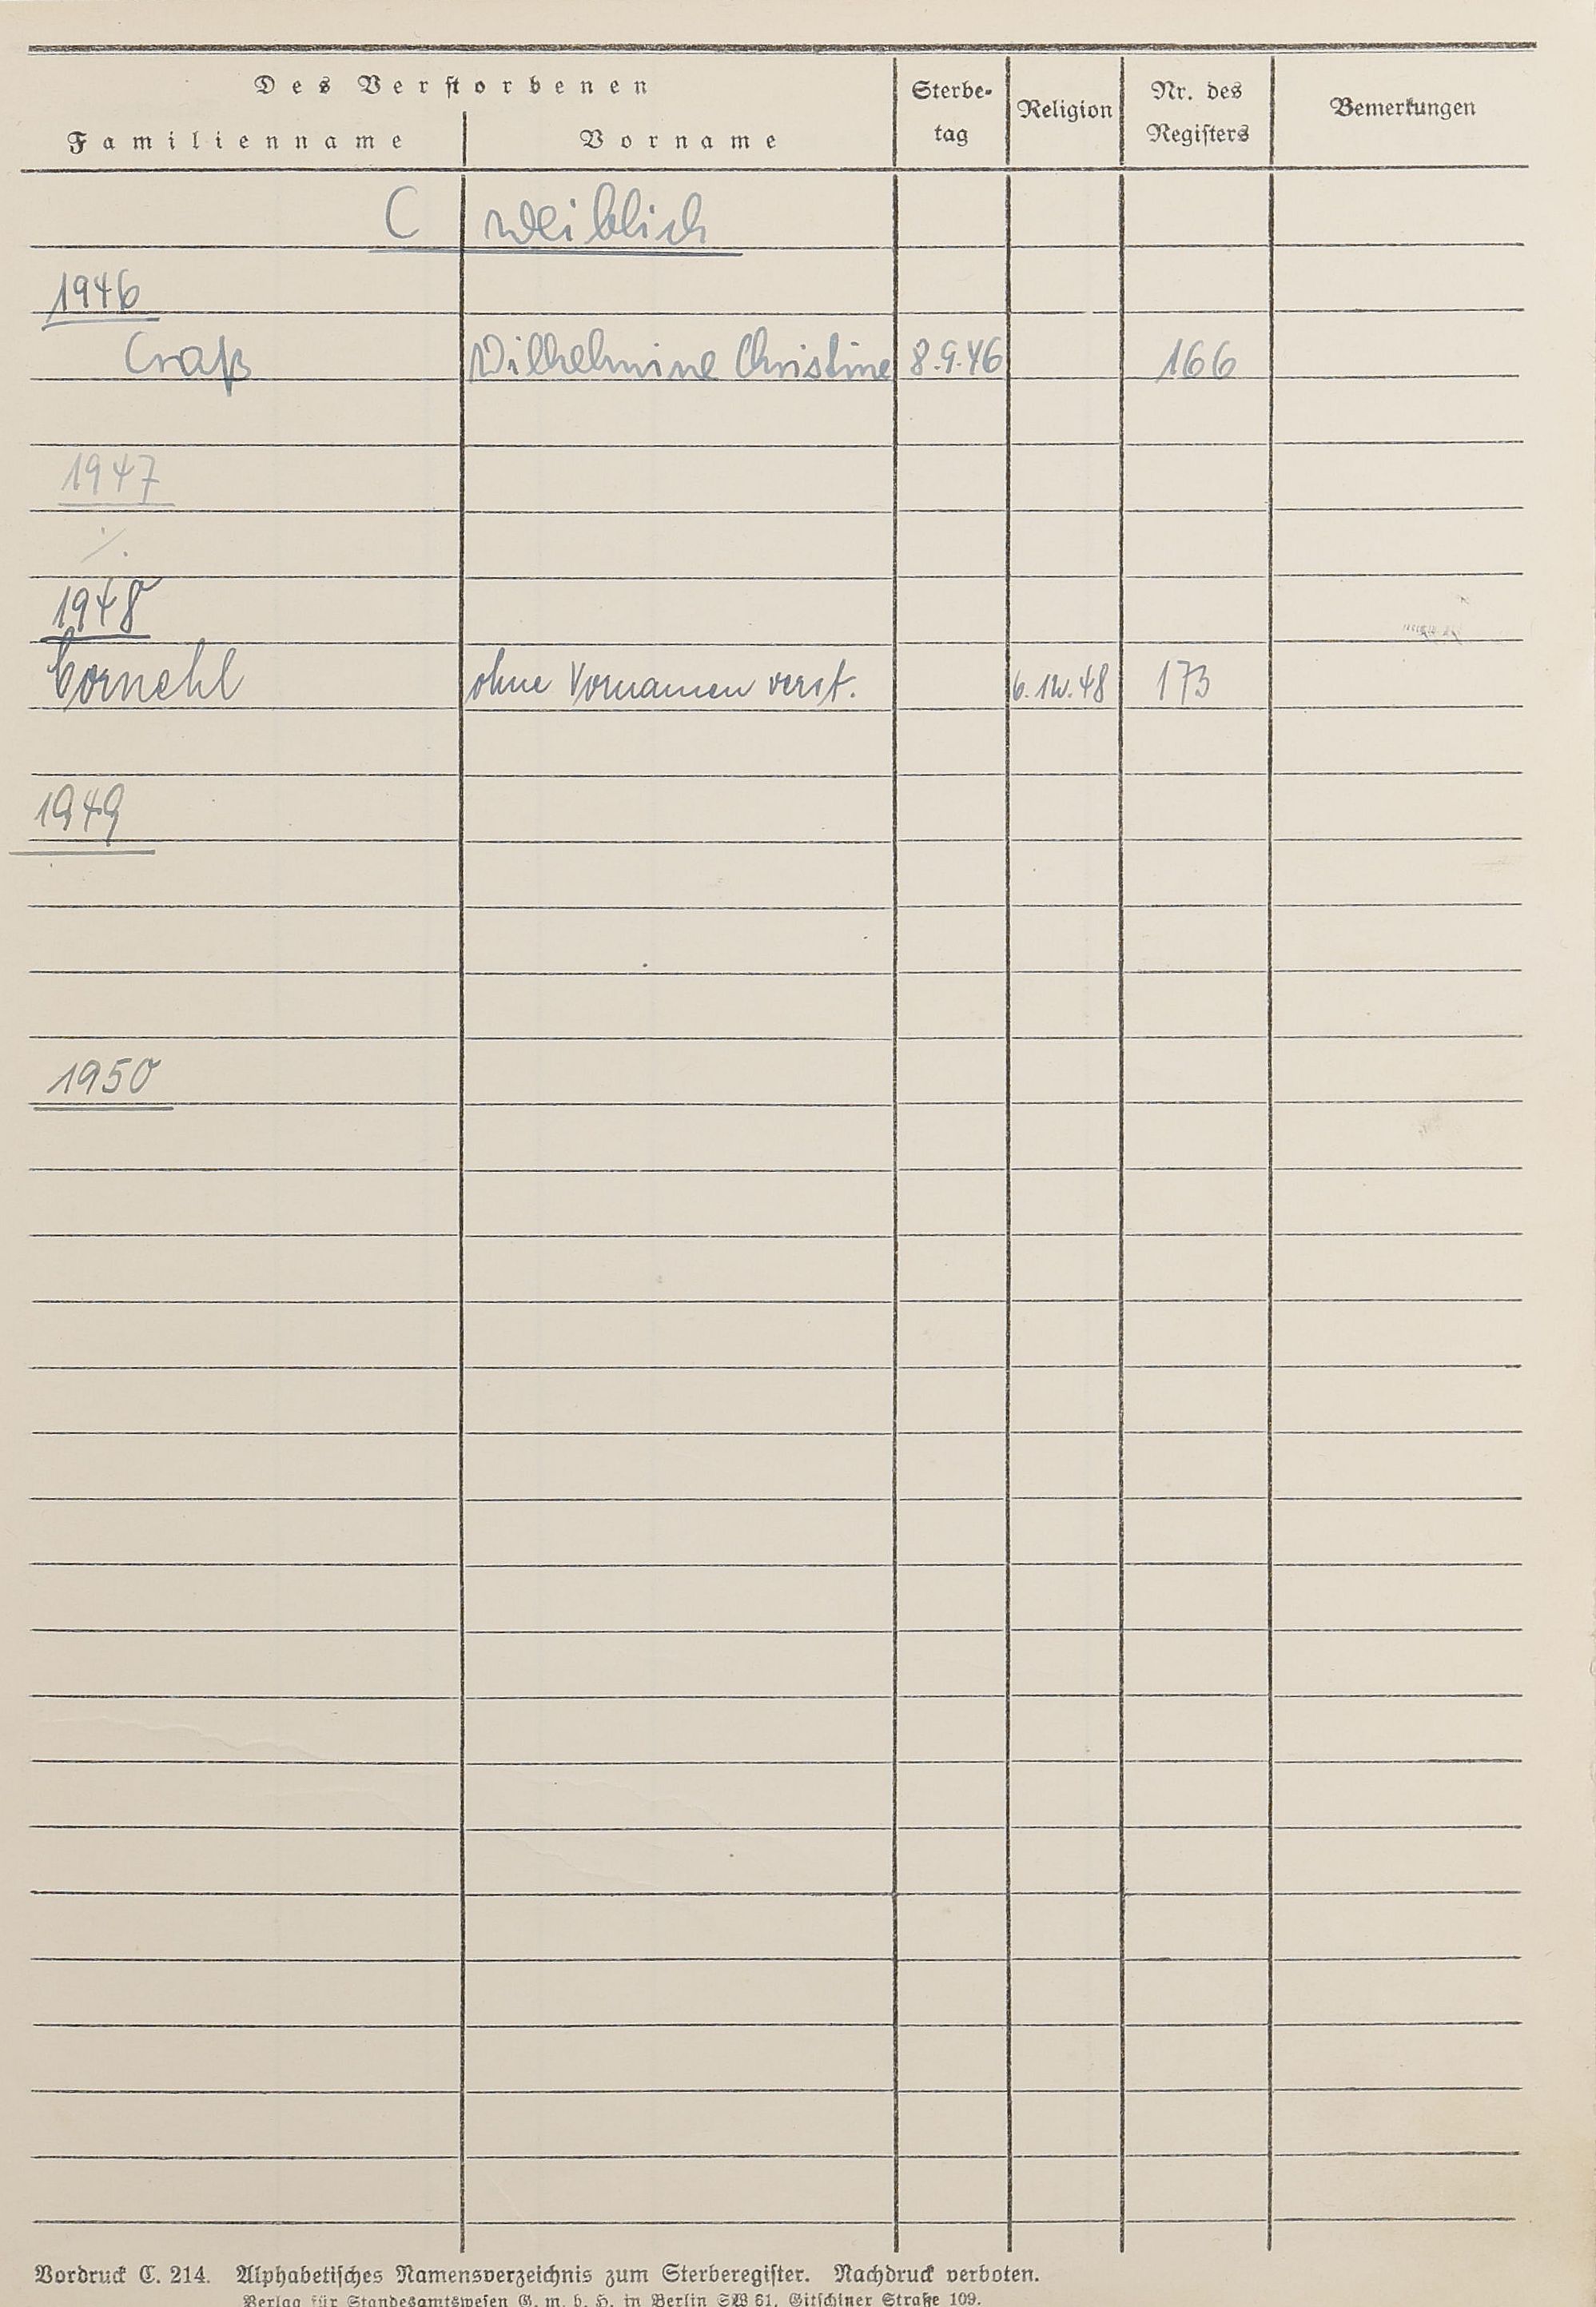 Des Verstorbenen
Familienname Vorname Sterbe-tag Religion Nr. des Registers Bemerkungen
C weiblich
1946
Craß Wilhelmine Christine 8.9.46 166
1947
./.
1948
Cornehl ohne Vornamen verst. 6.12.48 173
1949
1950
Vordruck C. 214. Alphabetisches Namensverzeichnis zum Sterberegister. Nachdruck verboten.
Verlag für Standesamtswesen G. m. b. H. in Berlin SW 61, Gitschiner Straße 109.